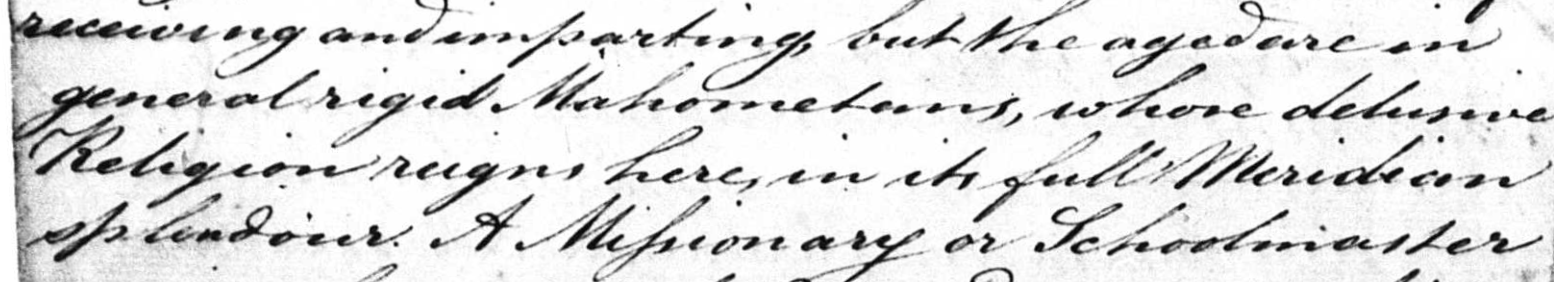 receiving and imparting, but the aged are in
general rigid Mahometans, whose delusive
Religion reigns here, in its full Meridian
splendour. A Missionary or Schoolmaster